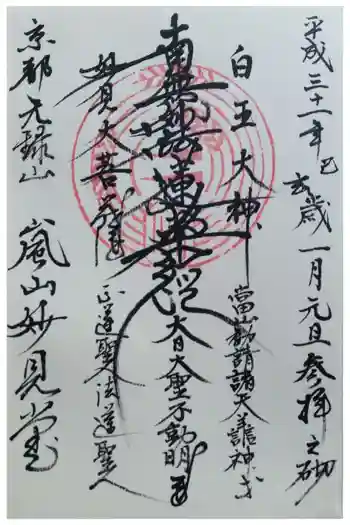 平成三十一年己亥歳一月元旦参拝之砌
白玉大神
當山勧請諸天善神等
南無妙法蓮華経
大日大聖不動明王
妙見大菩薩
正道聖人法道聖人
京都元録山 嵐山妙見堂